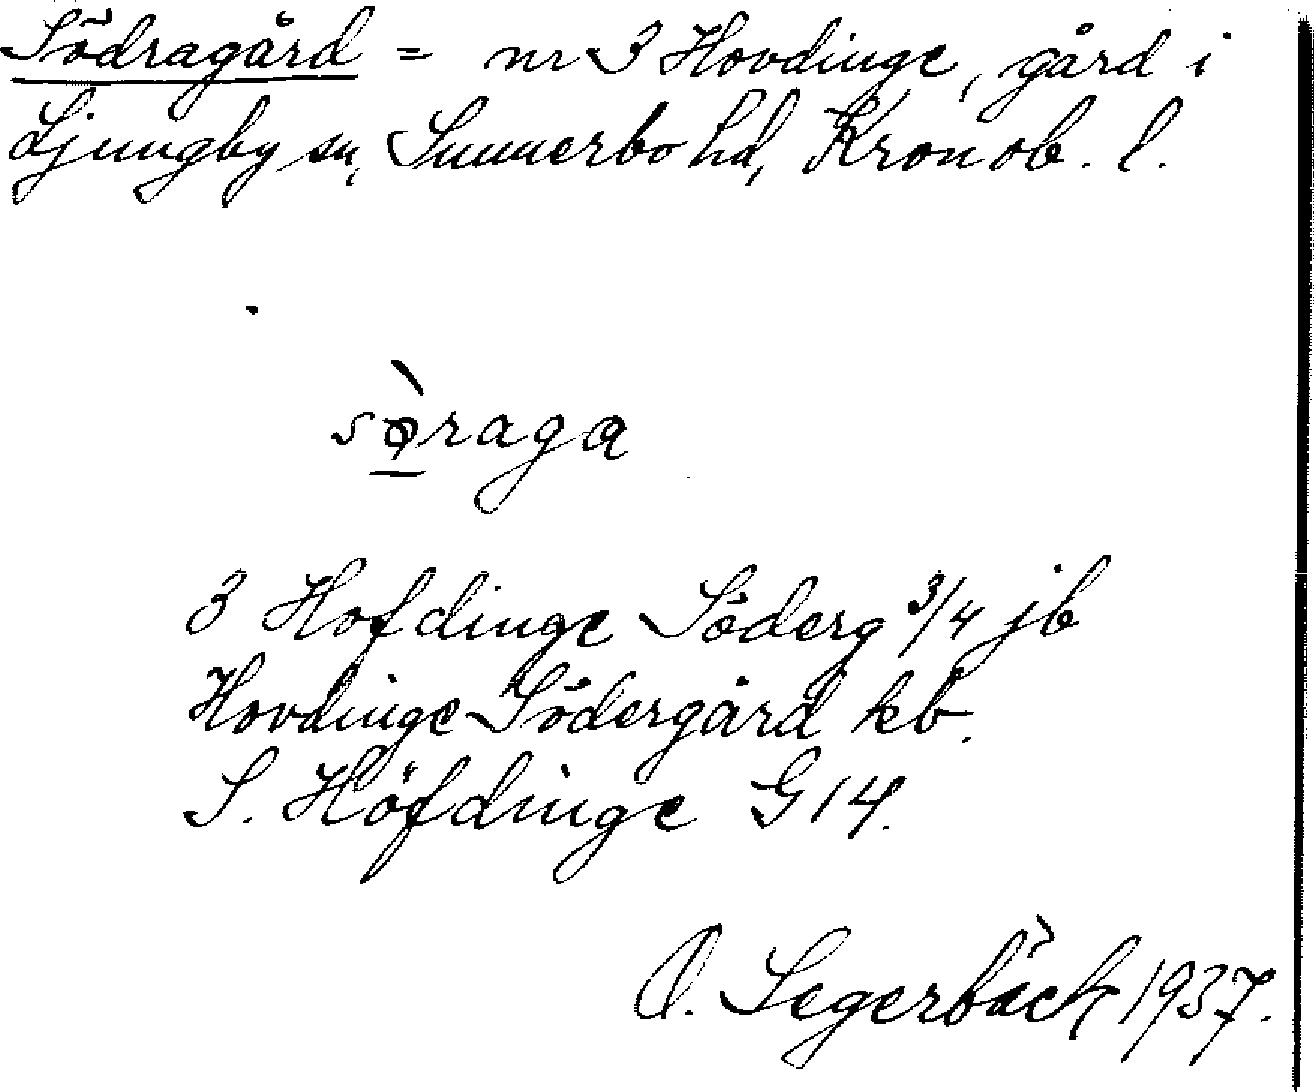 Södragård = nr 3 Hovdinge, gård i
Ljungby sn, Sunnerbo hd, Kronob. l.
sø̀raga
3 Hofdinge Söderg 3/4 jb
Hovdinge Södergård kb.
S. Höfdinge G 14.
O. Segerbäck 1937.